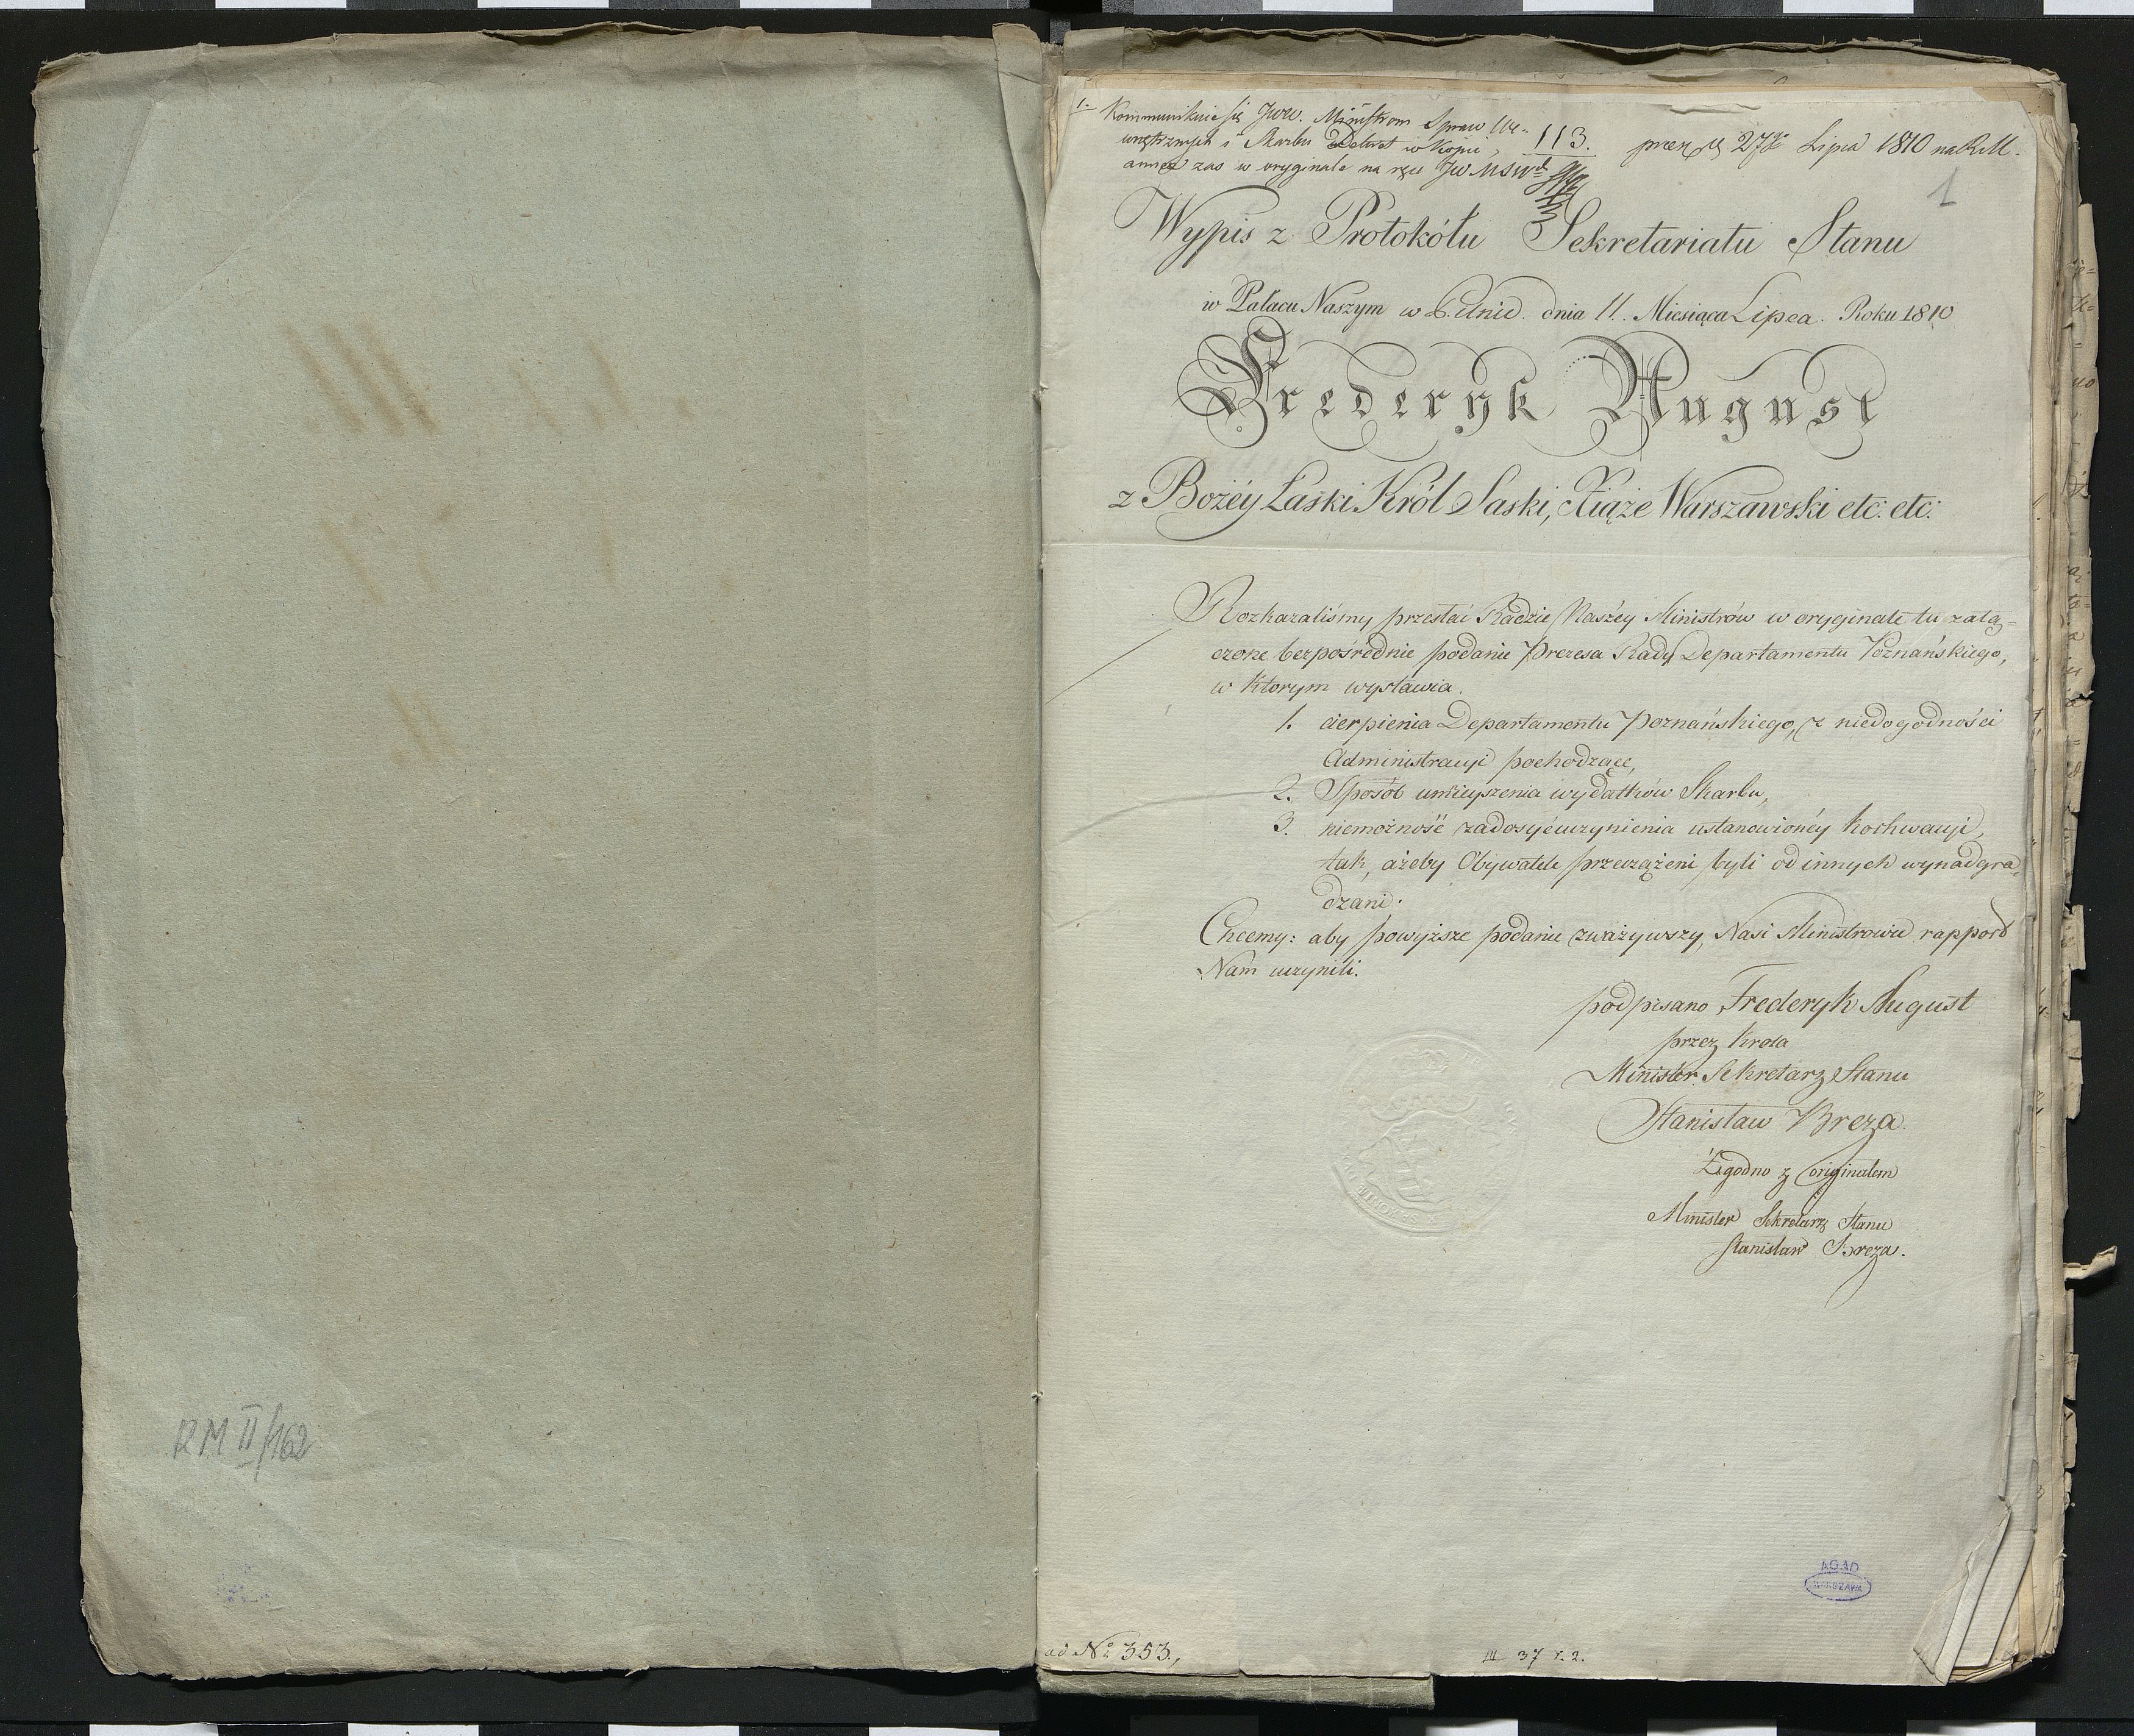 RM II/162
1.
Kommunikuie się JWW. Ministrom Spraw We-
wnętrznych i Skarbu Dekret w Kopii,
annex zaś w oryginale na ręce JW MSW
113.
27 Lipca 1810 na R.M.
1
Wypis z Protokółu Sekretariatu Stanu
w Pałacu Naszym w dnia 11. Miesiąca Lipca. Roku 1810
Frederyk August
z Bożéy Łaski Król Saski, Xiąże Warszawski etc: etc:
Rozkazaliśmy przesłać Radzie Naszéy Ministrów w oryginale tu załą=
czone bezpośrednie podanie Prezesa Rady Departamentu Poznańskiego,
w którym wystawia.
1. cierpienia Departamentu Poznańskiego, z niedogodności
Administracyi pochodzące,
2. Sposób umieyszenia wydatków Skarbu,
3. niemożność zadosyćuczynienia ustanowionéy
tak, ażeby Obywatele przeciążeni byli od innych wynadgra=
dzani.
Chcemy: aby powyższe podanie zważywszy, Nasi Ministrowie rapport
Nam uczynili.
podpisano Frederyk August
przez Krola
Minister Sekretarz Stanu
Stanisław Breza.
Zgodno z originałem
Minister Sekretarz Stanu
Stanisław Breza.
AGAD
WARSZAWA
ad No 353.
III 37 r. 2.